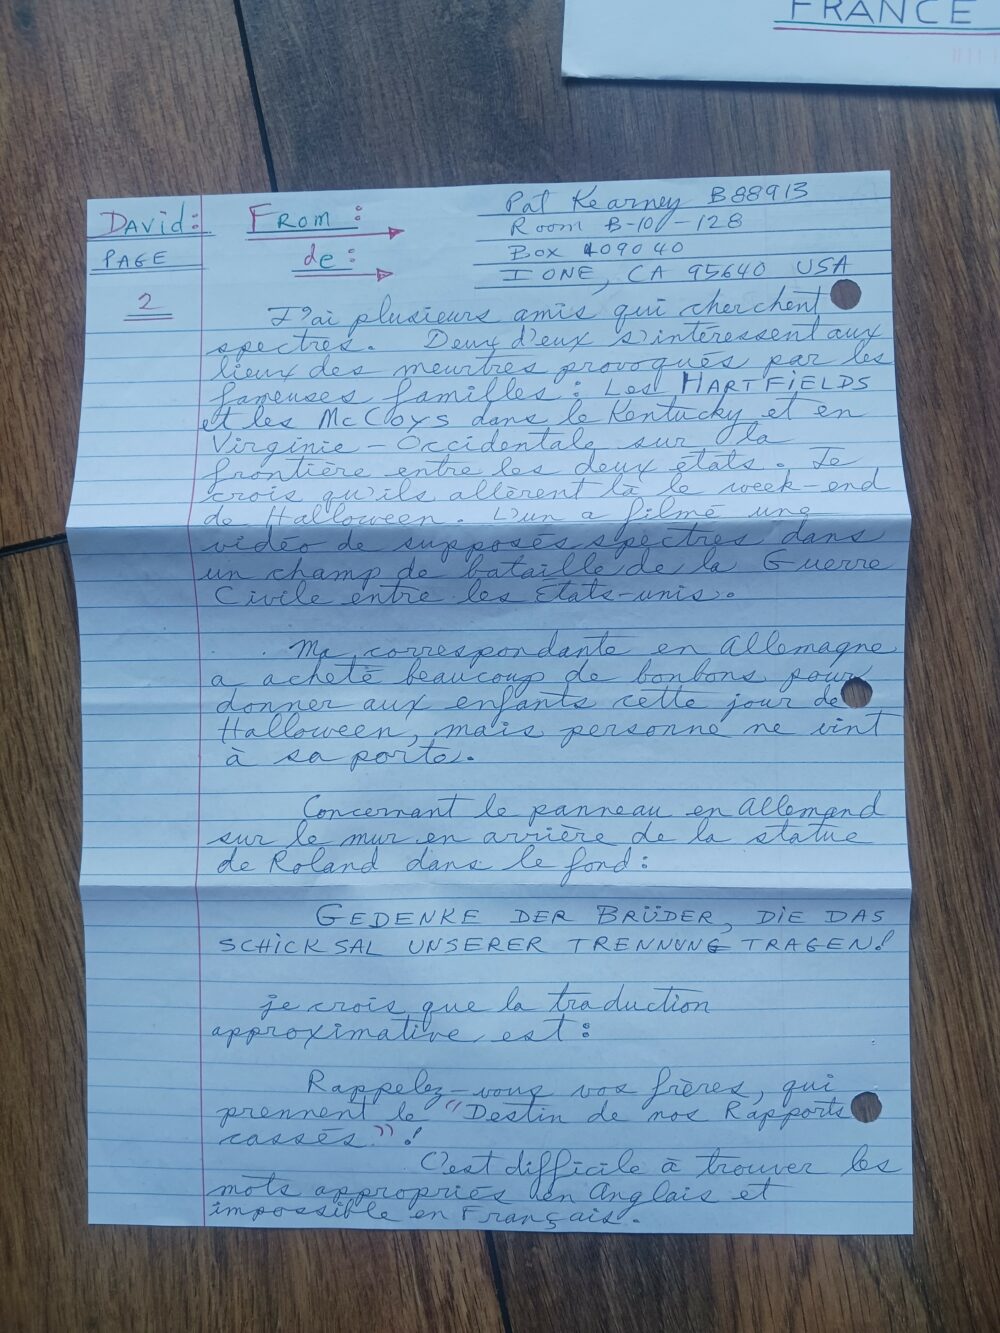 FRANCE
David: From: Pat Kearney B88913
PAGE Room B-10/-128
de: Box 409040
2 IONE, CA 95640 USA
J'ai plusieurs amis qui cherchent
spectres. Deux d'eux s'intéressent aux
lieux des meurtres provoqués par les
fameuses familles: Les HARTFIELDS
et les McCoys dans le Kentucky et en
Virginie-Occidentale sur la
frontière entre les deux états. Je
crois qu'ils allèrent là le week-end
de Halloween. L'un a filmé une
vidéo de supposés spectres dans
un champ de bataille de la Guerre
Civile entre les États-unis.
Ma correspondante en Allemagne
a acheté beaucoup de bonbons pour
donner aux enfants cette jour de
Halloween, mais personne ne vint
à sa porte.
Concernant le panneau en Allemand
sur le mur en arrière de la statue
de Roland dans le fond:
GEDENKE DER BRÜDER, DIE DAS
SCHICKSAL UNSERER TRENNUNG TRAGEN!
je crois que la traduction
approximative est:
Rappelez-vous vos frères, qui
prennent le "Destin de nos Rapports
cassés"!
C'est difficile à trouver les
mots appropriés en Anglais et
impossible en Français.